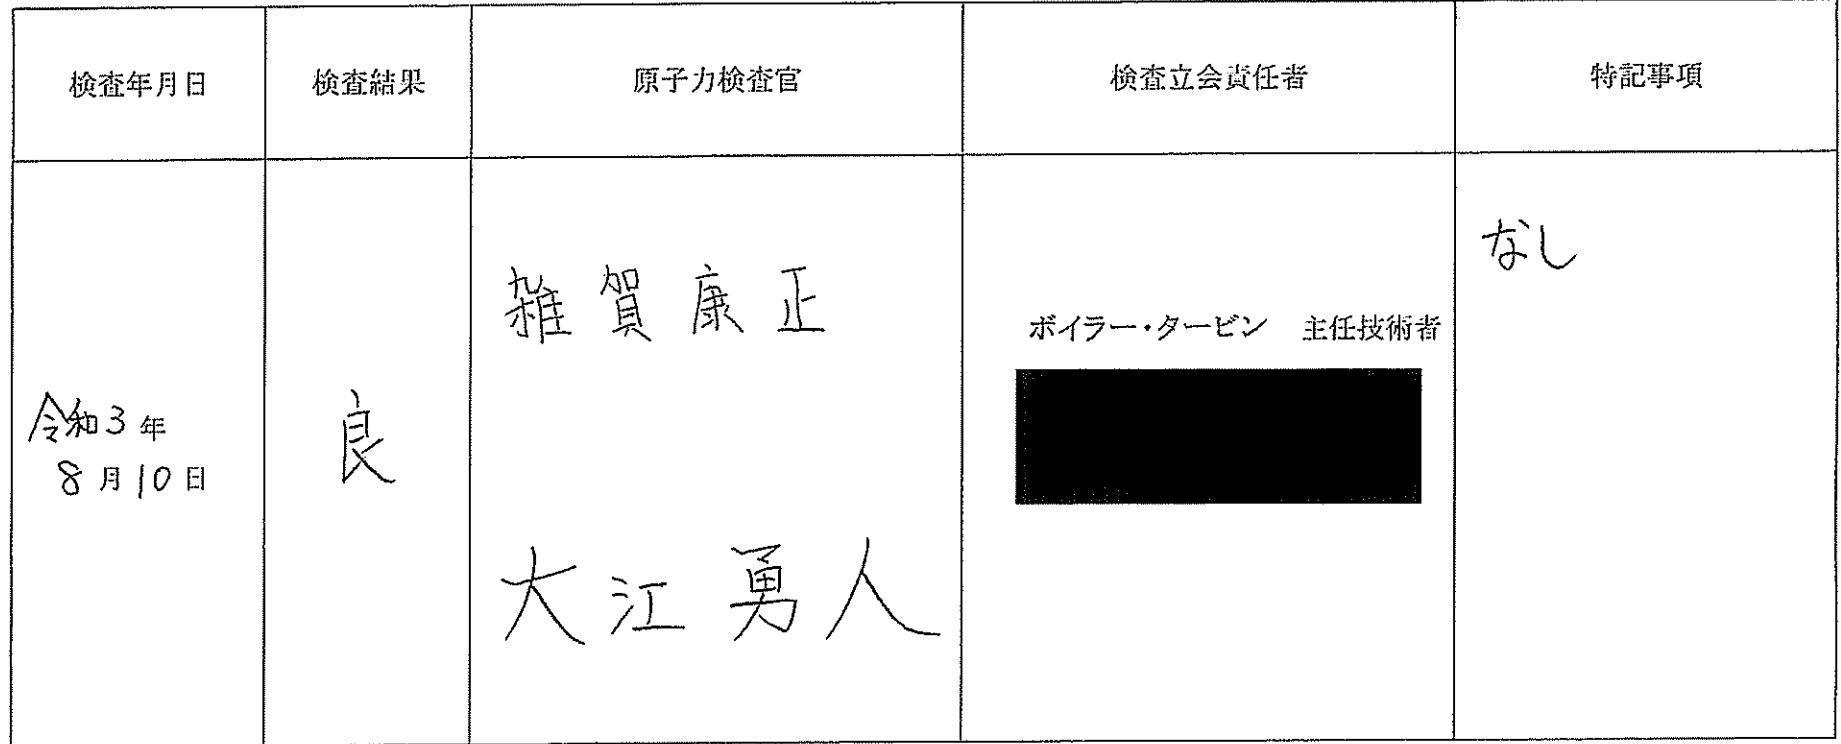 検査年月日
検査結果
原子力検査官
検査立会責任者
特記事項
令和3年
8月10日
良
雑賀康正
大江勇人
ボイラー・タービン 主任技術者
なし